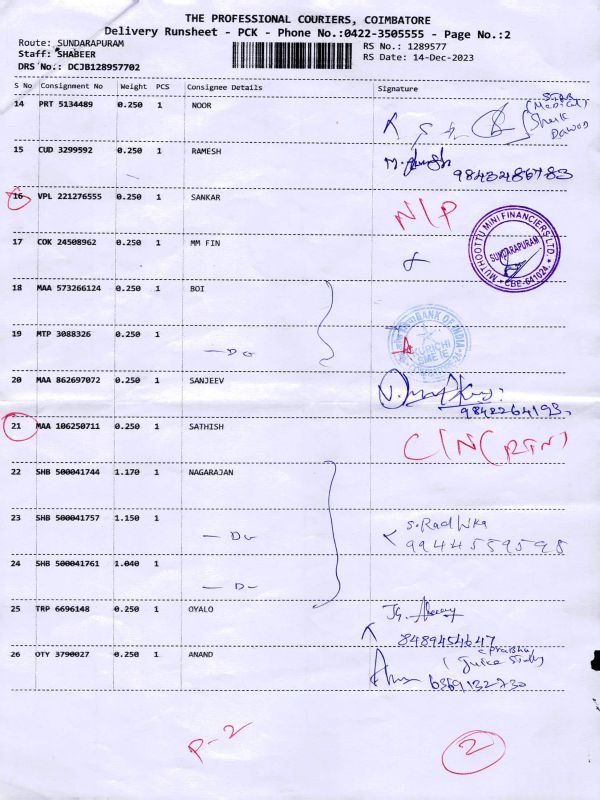 THE PROFESSIONAL COURIERS, COIMBATORE
Delivery Runsheet - PCK - Phone No.:0422-3505555 - Page No.:2
Route: SUNDARAPURAM
RS No.: 1289577
Staff: SHABEER
RS Date: 14-Dec-2023
DRS No.: DCJB128957702
S No Consignment No Weight PCS Consignee Details Signature
14 PRT 5134489 0.250 1 NOOR
STAR
(Medical)
Sheik
Dawood
15 CUD 3299592 0.250 1 RAMESH
9843486783
16 VPL 221276555 0.250 1 SANKAR N/P
17 COK 24508962 0.250 1 MM FIN
MUTHOOTTU MINI FINANCIERS LTD.
SUNDARAPURAM
CBE-641024
18 MAA 573266124 0.250 1 BOI
19 MTP 3088326 0.250 1 — Do
BANK OF INDIA
KURICHI
SME IE
20 MAA 862697072 0.250 1 SANJEEV
9842264193
21 MAA 106250711 0.250 1 SATHISH C/N (RTN)
22 SHB 500041744 1.170 1 NAGARAJAN
23 SHB 500041757 1.150 1 — Do S. Radhika
9944559598
24 SHB 500041761 1.040 1 — Do
25 TRP 6696148 0.250 1 OYALO
8489454647
26 OTY 3790027 0.250 1 ANAND
Prabhu
(Juice Stall)
6369132730
P-2
2